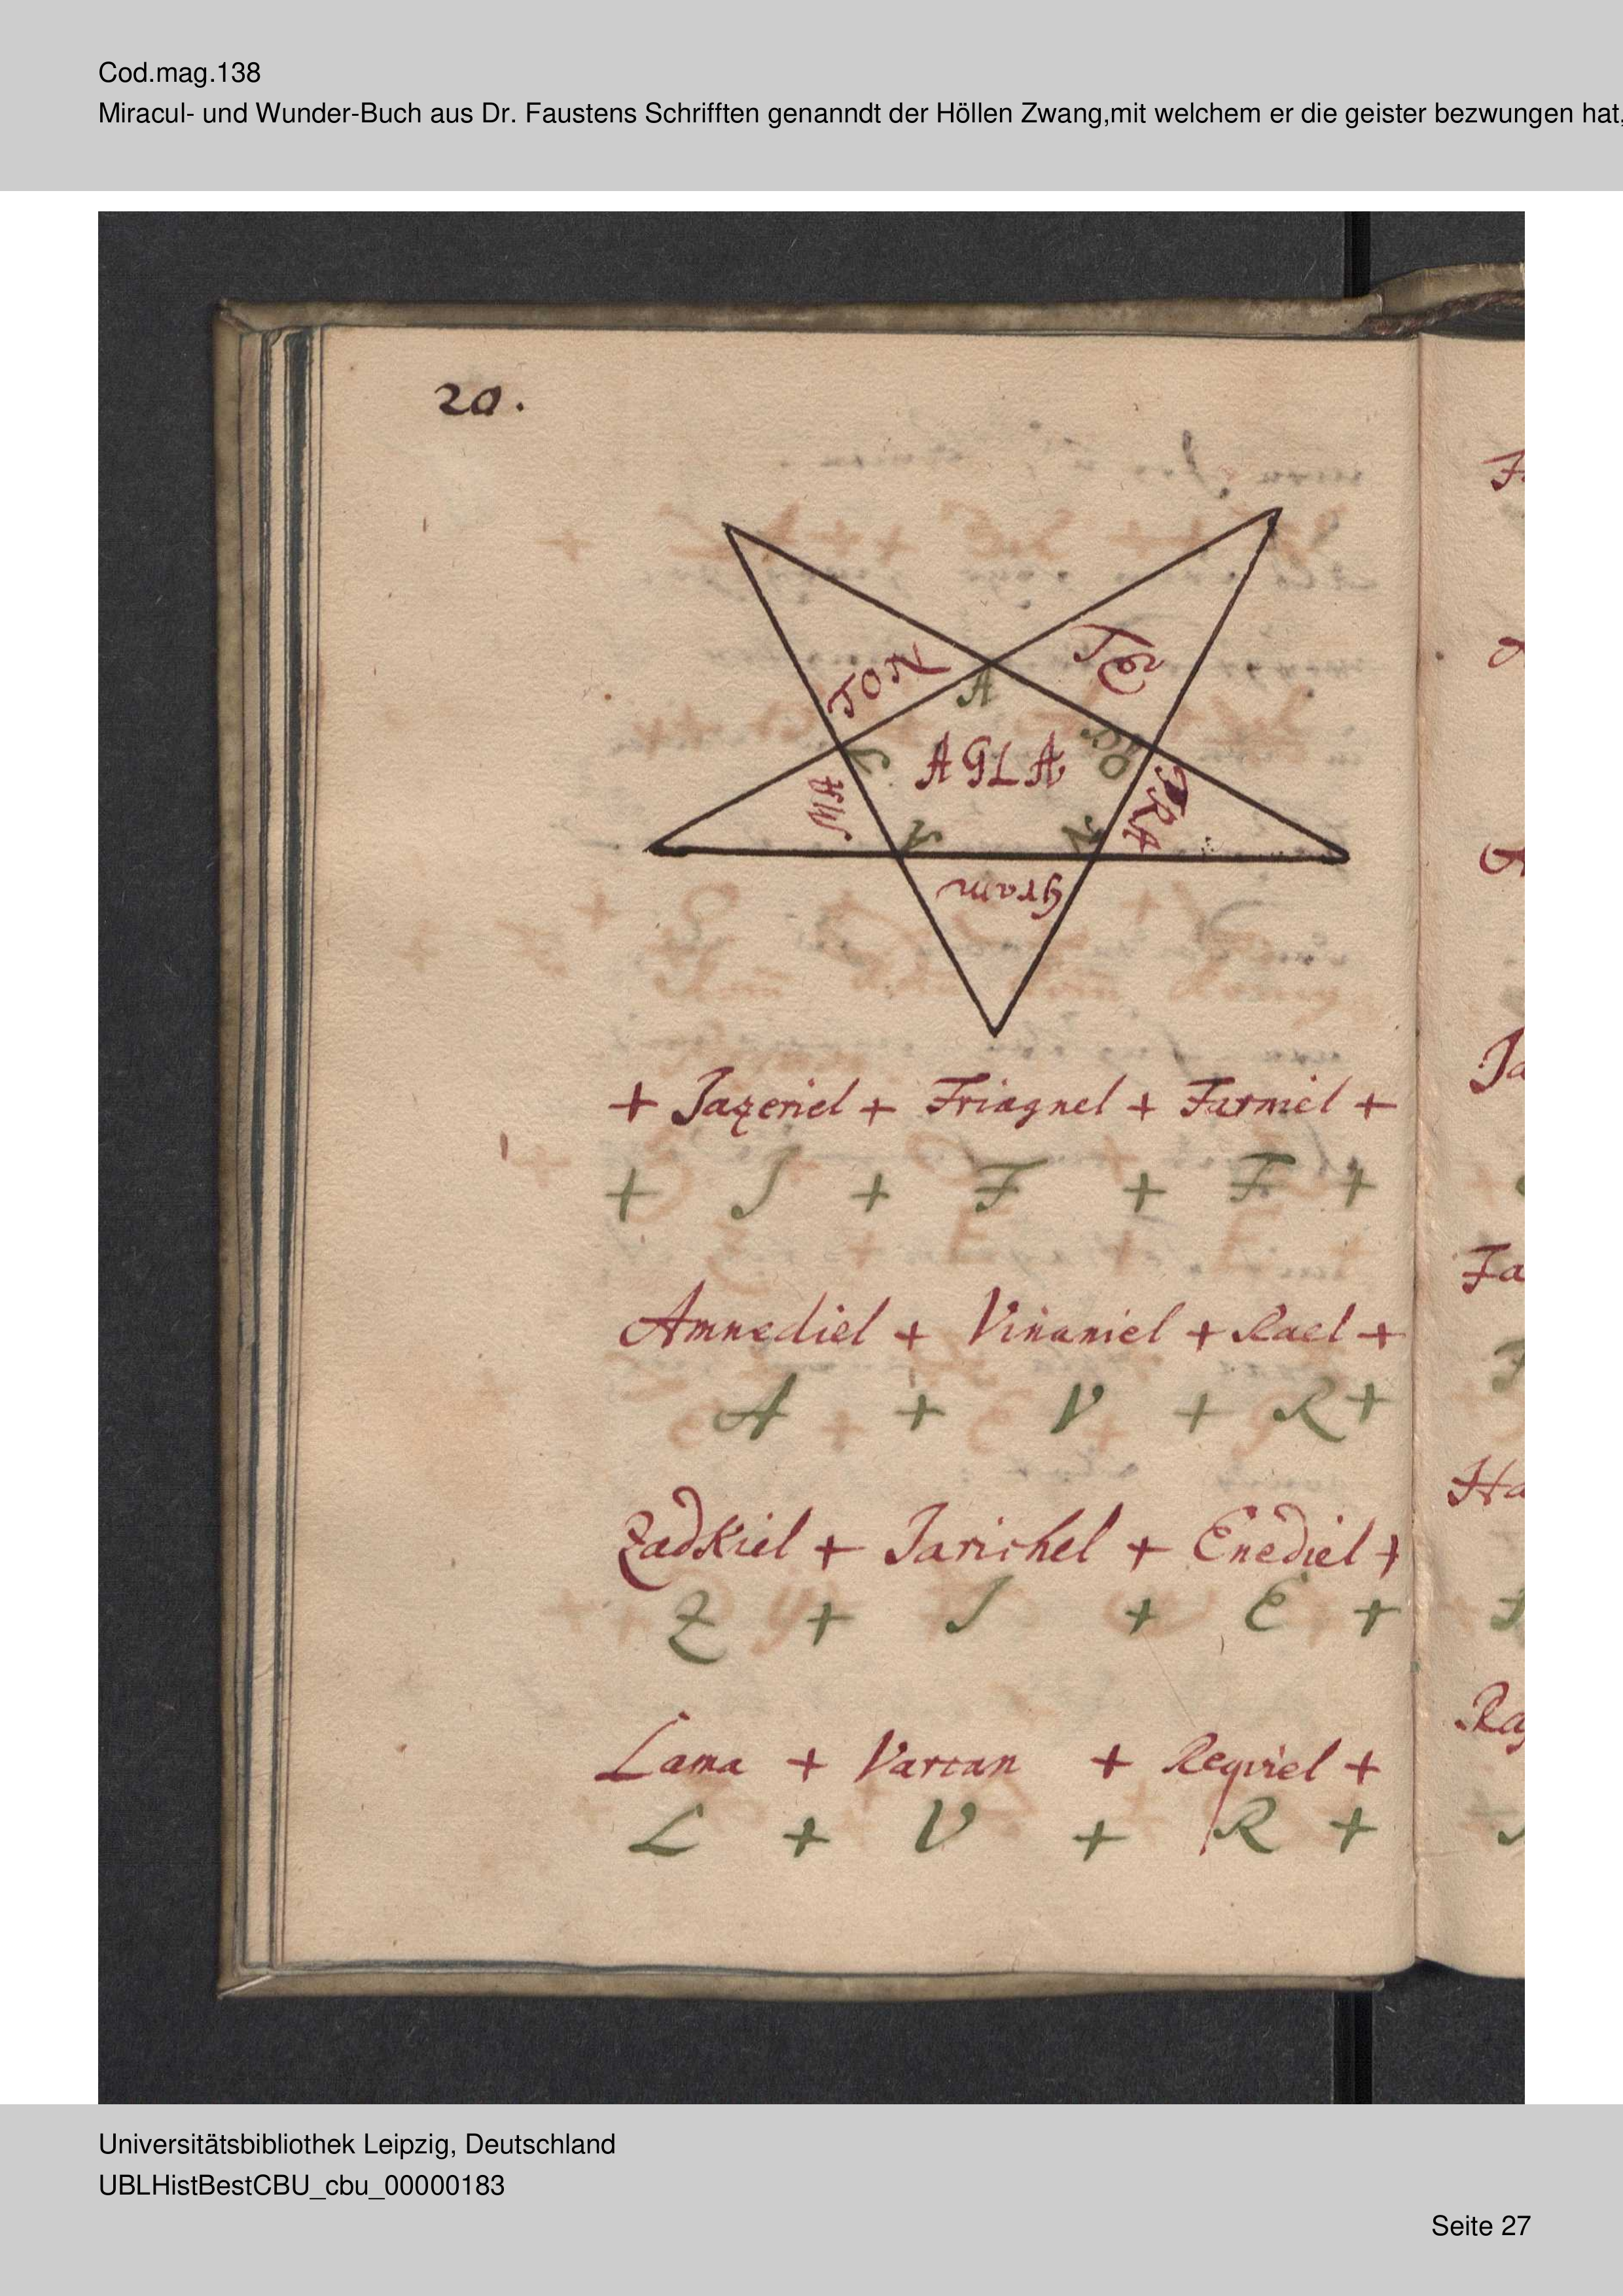 Cod.mag.138
Miracul- und Wunder-Buch aus Dr. Faustens Schrifften genanndt der Höllen Zwang,mit welchem er die geister bezwungen hat,
20.
TON
TE
A
AGLA
MA
TRA
Gram
+ Jazeriel + Friagnel + Farmiel +
+ J + F + F +
Amnediel + Vinaniel + Rael +
A + V + R +
Zadkiel + Jarichel + Enediel +
Z + J + E +
Lama + Varcan + Reqviel +
L + V + R +
Ja
Fa
Ha
Universitätsbibliothek Leipzig, Deutschland
UBLHistBestCBU_cbu_00000183
Seite 27